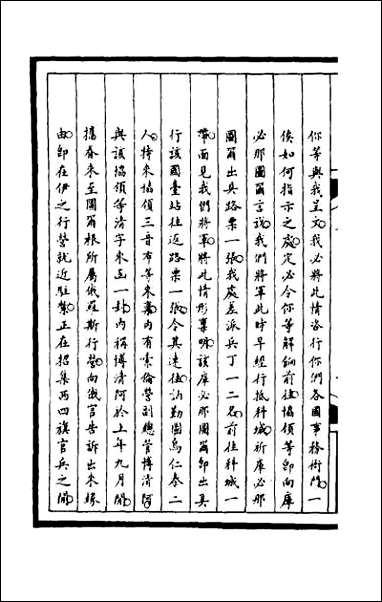 你等與我呈文我必將此情咨行你們各國事務衙門一
俟如何指示之處定必令你等解餉前往協領等即向庫
必那圖爾言說我們將軍此時早經行抵科城祈庫必那
圖爾出具路票一張我處差派兵丁一二名前往科城一
帶面見我們將軍將此情形稟明該庫必那圖爾即出具
行該國臺站往返路票一張令其速往訪勤圖烏仁泰二
人持來協領三音布等來稟內有索倫營副總管博清阿
與該協領等清字來函一封內稱博清阿於上年九月間
攜眷來至圖爾根所屬俄羅斯行營向俄官告訴出來緣
由即在伊之行營就近駐紮正在招集西四旗官兵之間